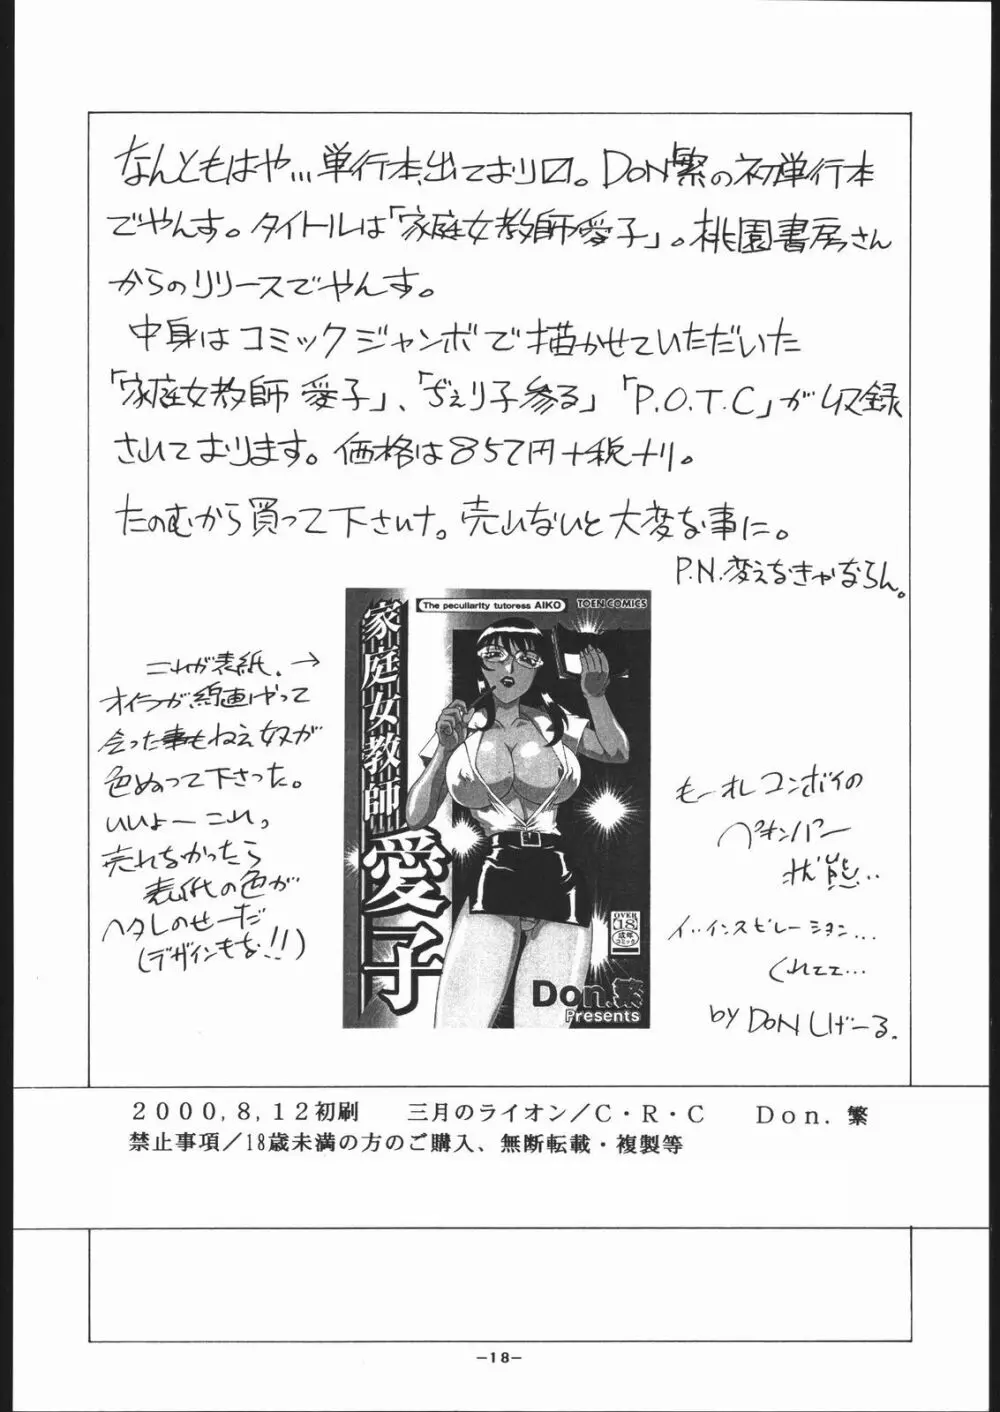 なんともはや…単行本、出ており〼。DON繁の初単行本
でやんす。タイトルは「家庭女教師愛子」。桃園書房さん
からのリリースでやんす。
中身はコミックジャンボで描かせていただいた
「家庭女教師 愛子」、「ぢぇり子参る」「P.O.T.C」が収録
されております。価格は857円+税ナリ。
たのむから買って下さいナ。売れないと大変な事に。
P.N.変えなきゃならん。
The peculiarity tutoress AIKO
TOEN COMICS
家庭女教師
愛子
OVER
18
成年
コミック
Don.繁
Presents
これが表紙。→
オイラが線画はやって
会った事もねえ奴が
色ぬって下さった。
いいよーこれっ
売れなかったら
表紙の色が
ヘタレのせーだ
(デザインもな!!)
もーオレコンボイの
ペキンパー
状態..
インスピレーション...
くれェェ...
by DON しげーる.
2000,8,12初刷 三月のライオン/C・R・C Don. 繁
禁止事項/18歳未満の方のご購入、無断転載・複製等
-18-